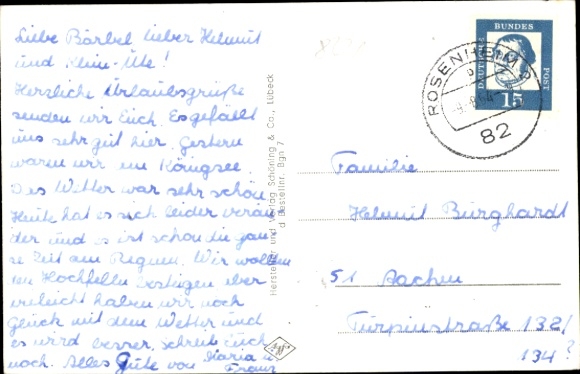 Liebe Bärbel lieber Helmut
und Klein-Ute!
Herzliche Urlaubsgrüße
senden wir Euch. Es gefällt
uns sehr gut hier. Gestern
waren wir am Königsee.
Das Wetter war sehr schön.
Heute hat es sich leider verän
der und es ist schon die gan
ze Zeit am Regnen. Wir wollten
den Hochfelln besteigen aber
vieleicht haben wir noch
Glück mit dem Wetter und
es wird besser, schreib Euch
noch. Alles Gute von Maria u
Franz
Hersteller und Verlag Schöning & Co., Lübeck
Bestellnr. Bgn 7
DEUTSCHE BUNDES POST
15
ROSENHEIM 2
82
Familie
Helmut Burghardt
51 Aachen
Turpinstraße 132/
134?